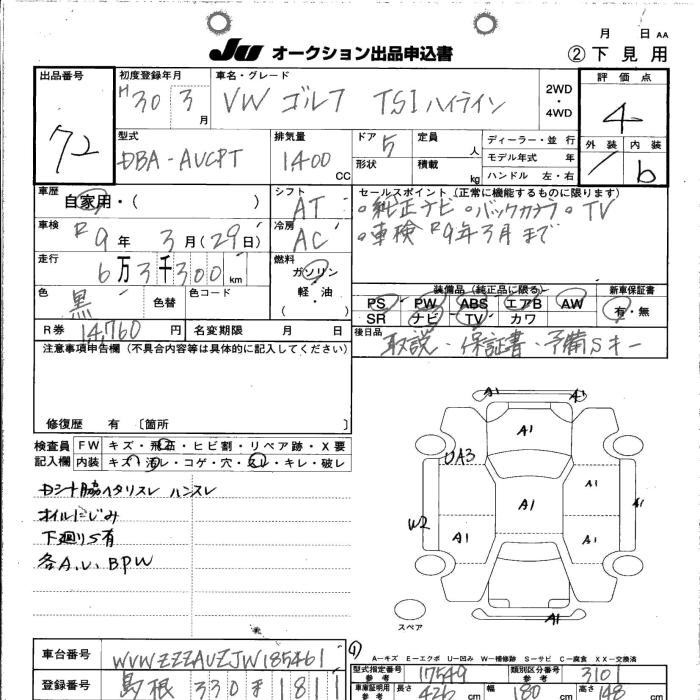 月 日 AA
JU オークション出品申込書
② 下見用
出品番号
72
初度登録年月
H30 3月
車名・グレード
VW ゴルフ TSIハイライン
2WD
・
4WD
評価点
4
外装 内装
b
型式
DBA-AUCPT
排気量
1400 CC
ドア 5
形状
定員 人
積載 kg
ディーラー・並行
モデル年式 年
ハンドル 左・右
車歴
自家用・( )
シフト
AT
セールスポイント(正常に機能するものに限ります)
○純正ナビ ○バックカメラ ○TV
○車検R9年3月まで
車検
R9年3月(29日)
冷房
AC
走行
6万3千300km
燃料
ガソリン
軽・油
( )
色
黒
色替
色コード
装備品(純正品に限る)
PS PW ABS エアB AW
SR ナビ TV カワ
新車保証書
有・無
R券 14,760円
名変期限 月 日
後日品
取説・保証書・予備Sキー
注意事項申告欄(不具合内容等は具体的に記入してください)
修復歴 有 〔箇所 〕
検査員
記入欄
FW キズ・飛石・ヒビ割・リペア跡・X要
内装 キズ・汚レ・コゲ・穴・スレ・キレ・破レ
Dシート脇ヘタリスレ ハンスレ
オイルにじみ
下廻りS有
各A.U.BPW
A1
A1
A1
UA3
A1
A1
A1
W2
A1
A1
A1
スペア
A-キズ E-エクボ U-凹み W-補修跡 S-サビ C-腐食 XX-交換済
車台番号
WVWZZZAUZJW185461
登録番号
島根 330 1811
型式指定番号
参考
17549
類別区分番号
参考
310
車庫証明用
参考
長さ 426 cm
幅 180 cm
高さ 148 cm